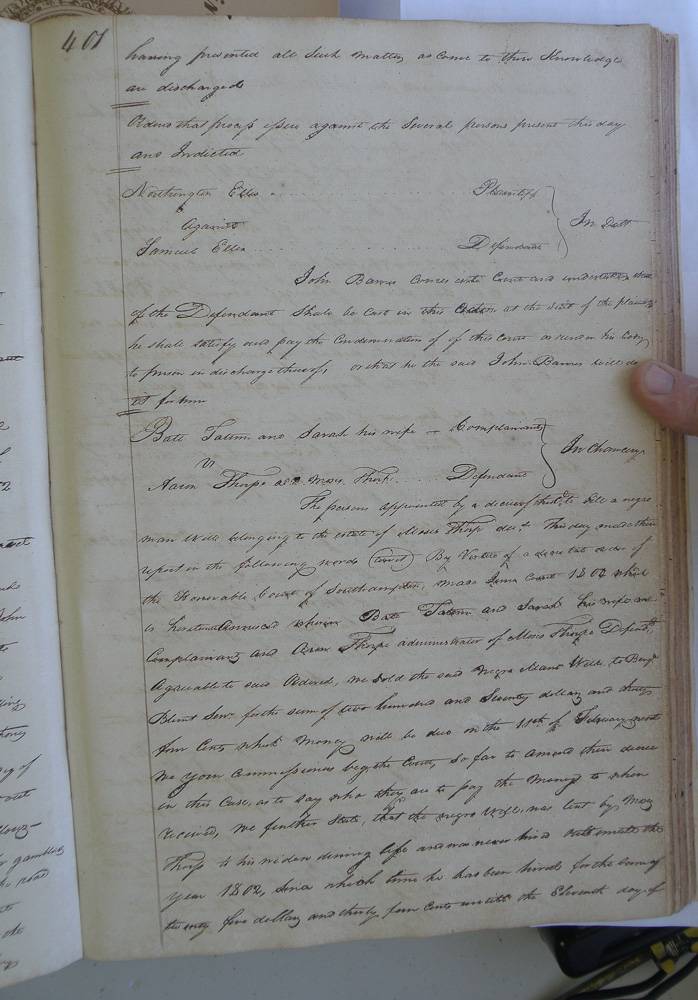 401
having presented all Such matters as come to their Knowledge
are discharged
Orders that process issue against the Several persons present this day
and Indicted
Northington Ellis Plaintiff
Against In Debt
Samuel Ellis Defendant
John Barns Comes into Court and undertakes that
if the Defendant Shall be Cast in this Action at the Suit of the plaintiff
he shall satisfy and pay the Condemnation of of this Court or render his body
to prison in discharge thereof, or that he the said John Barns will do
it for him
Batt Tatum and Sarah his wife Complainants
vs In Chancery
Aaron Thorpe Moses Thorp Defendant
The persons appointed by a decree of to Sell a negro
man Will belonging to the estate of Moses Thorp decd. This day made their
report in the following words (towit) By Virtue of a decretal order of
the Honorable Court of Southampton, made June Court 1802 which
is hereunto Annexed wherein Batt Tatum and Sarah his wife are
Complainants and Aaron Thorpe administrator of Moses Thorpe Defendt.
Agreeable to said Ordered, we Sold the said Negro Man Will to Benja.
Blunt Senr. for the sum of two hundred and Seventy dollars and
four Cents which Money will be due on the of February next
We your Commissioners beg the Court, so far to amend their decree
in this Case, as to say who they are to pay the Money to when
received, We further State, that the negro Will, was lent by Moses
Thorp to his widow during life and was never hired out untill the
Year 1802, Since which time he has been hired for the sum of
twenty five dollars and thirty four Cents untill the Eleventh day of